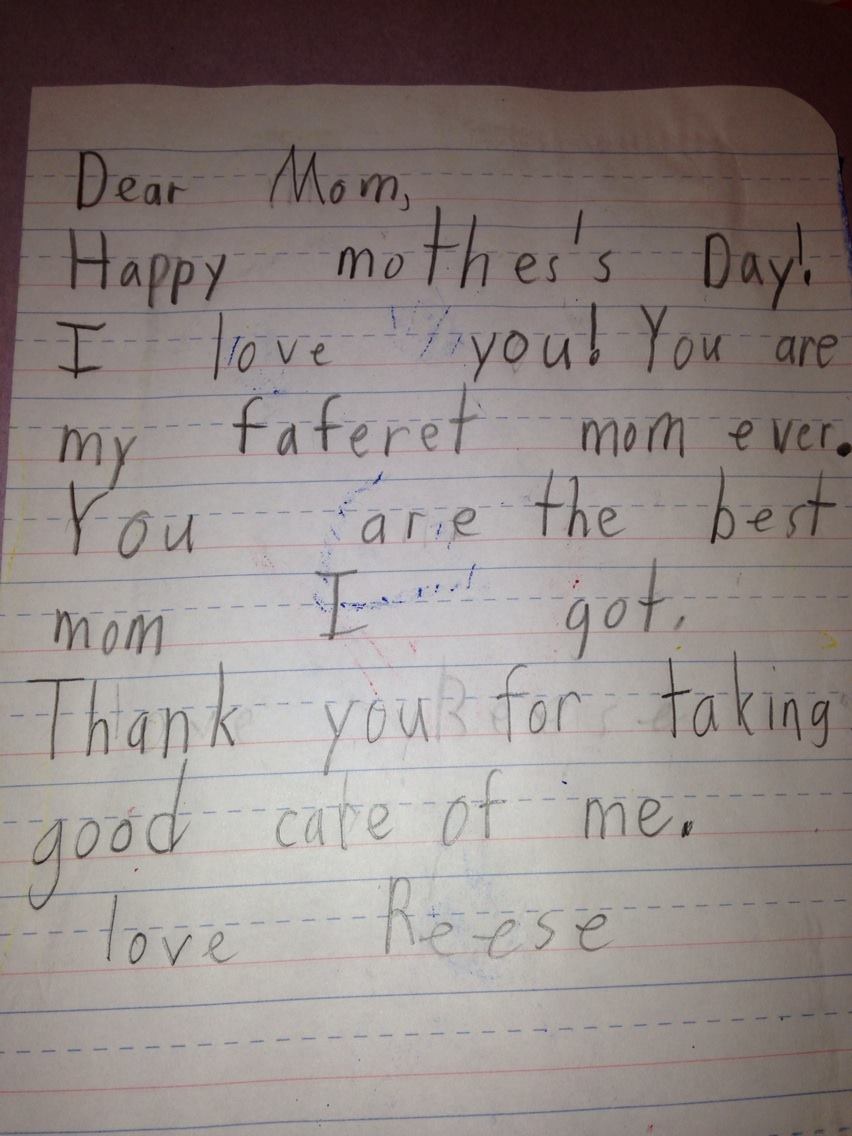 Dear Mom,
Happy mothes's Day!
I love you! You are
my faferet mom ever.
You are the best
mom I got.
Thank you for taking
good care of me.
love Reese